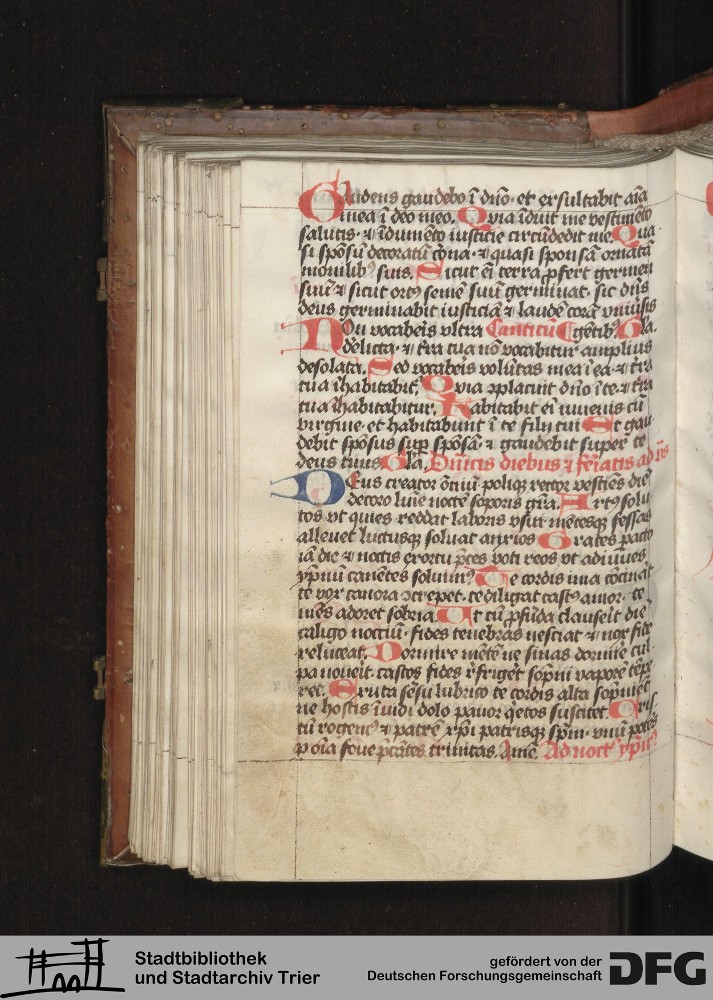 Gaudens gaudebo ī dn̄o · et exsultabit aīa
mea ī deo meo. Quia īduit me vestimēto
salutis · ⁊ īdumēto iusticie circūdedit me. Qua
si spōsū decoratū · ⁊ quasi sponsā ornatā
monilibꝰ suis. Sicut eī terra ꝓfert germen
suū ⁊ sicut ortꝰ semē suū germinat · sic dn̄s
deus germinabit iusticiā ⁊ laudē corā
Non vocaberis vltra Canticū Gl̄a.
derelicta · ⁊ tr̄a tua nō vocabitur amplius
desolata. Sed vocaberis volūtas mea ī ea · ⁊ tr̄a
tua īhabitabit̄. Quia ꝯplacuit dn̄o ī te · ⁊ tr̄a
tua īhabitabitur. Habitabit eī iuuenis cū
virgine · et habitabunt ī te filij tui Et gau
debit spōsus sup̄ spōsā ⁊ gaudebit super te
deus tuus. Gl̄a. Dn̄icis diebus ⁊ fēiatis ad
Deus creator om̄iū poliqꝫ rector vestiēs diē
decoro lūie noctē soporis gr̄a. Artꝰ solu
tos vt quies reddat laboris vsui mētesqꝫ fessas
alleuet luctusqꝫ soluat anxios Grates ꝑacto
iā die ⁊ noctis exortu p̄ces voti reos vt adiuues
ympnū canētes soluimꝰ Te cordis ima cōcināt
te vox canora ꝯcrepet · te diligat castꝰ amor · te
mēs adoret sobria. Ut cū ꝓfūda clauserit diē
caligo noctiū · fides tenebras nesciat ⁊ nox fide
reluceat. Dormire mētē ne sinas dormire cul
pa nouerit · castos fides r̄friget sopni vaporē tēpe
ret. Exuta sēsu lubrico te cordis alta sopniēt
ne hostis īuidi dolo pauor q̄etos suscitet. Cris
tū rogemꝰ ⁊ patrē xp̄i patrisqꝫ sp̄m · vnū potēs
ꝑ oīa foue p̄cātes trinitas. Amē. Ad noct̄ ympnꝰ
Stadtbibliothek
und Stadtarchiv Trier
gefördert von der
Deutschen Forschungsgemeinschaft DFG